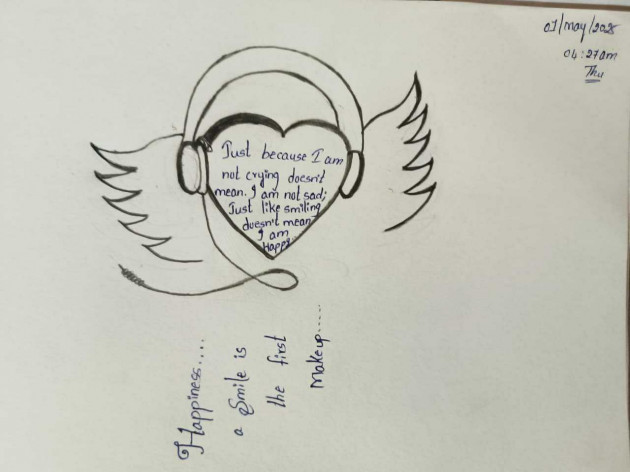 01/may/2025
04:27am
Thu
Just because I am
not crying doesn't
mean. I am not sad;
Just like smiling
doesn't mean
I am
Happy..
Happiness....
a Smile is
the first
Makeup.....